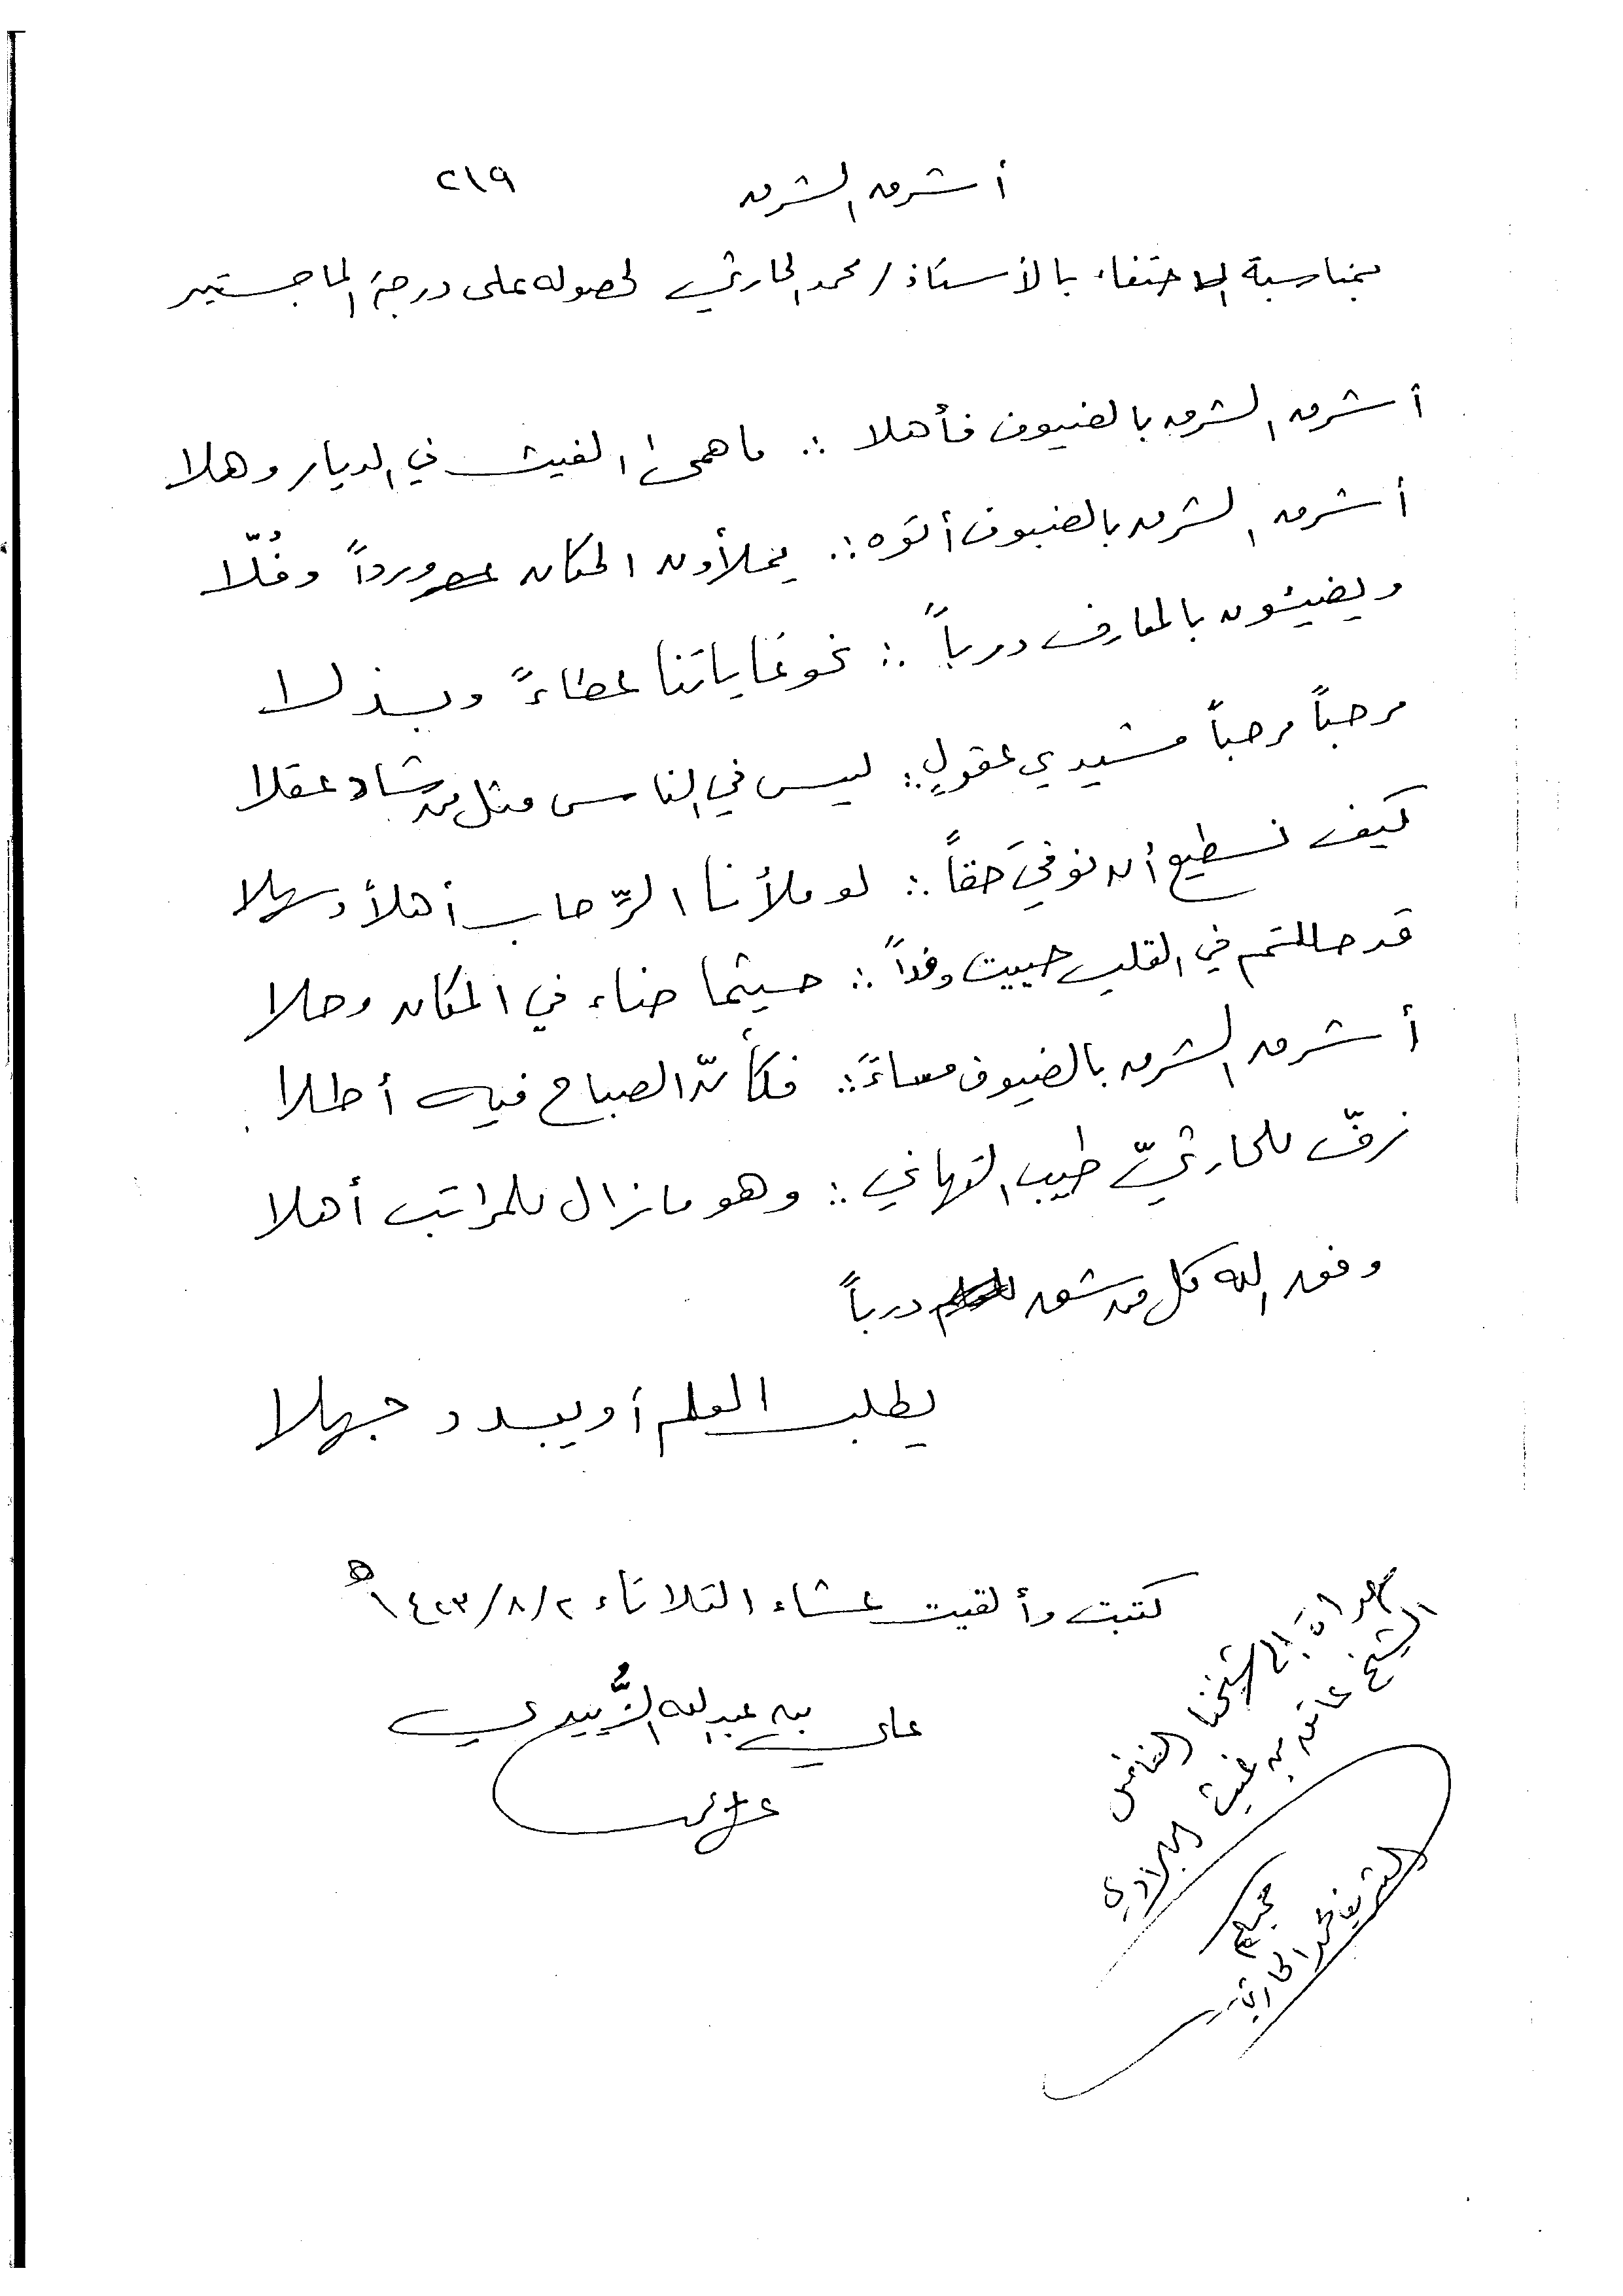 أشرق الشرق ٢١٩
بمناسبة الاحتفاء بالأستاذ / محمد الحارثي لحصوله على درجة الماجستير
أشرق الشرق بالضيوف فأهلا ∴ ما همى الغيث في الديار وهلا
أشرق الشرق بالضيوف أتوه ∴ يملأون المكان ورداً وفُلّا
ويضيئون بالمعارف درباً ∴ نحو غاياتنا عطاءً وبذلا
مرحباً مرحباً مشيدي عقولٍ ∴ ليس في الناس مثل من شاد عقلا
كيف نسطيع أن نوفيَ حقاً ∴ لو ملأنا الرِّحاب أهلاً وسهلا
قد حللتم في القلب حييت وفداً ∴ حيثما ضاء في المكان وحلا
أشرق الشرق بالضيوف مساءً ∴ فكأنّ الصباح فيه أطلا
نزفّ للحارثيّ طيب التهاني ∴ وهو ما زال للمراتب أهلا
وفق الله كل من شق درباً
يطلب العلم أو يبدد جهلا
كتبت وألقيت عشاء الثلاثاء ١٤٢٣/٨/٢ هـ
علي بن عبدالله الزُّبيدي
مهداة إلى شيخنا الفاضل
الشيخ عاتق بن غيث البلادي
محبكم
الشريف محمد الحارثي